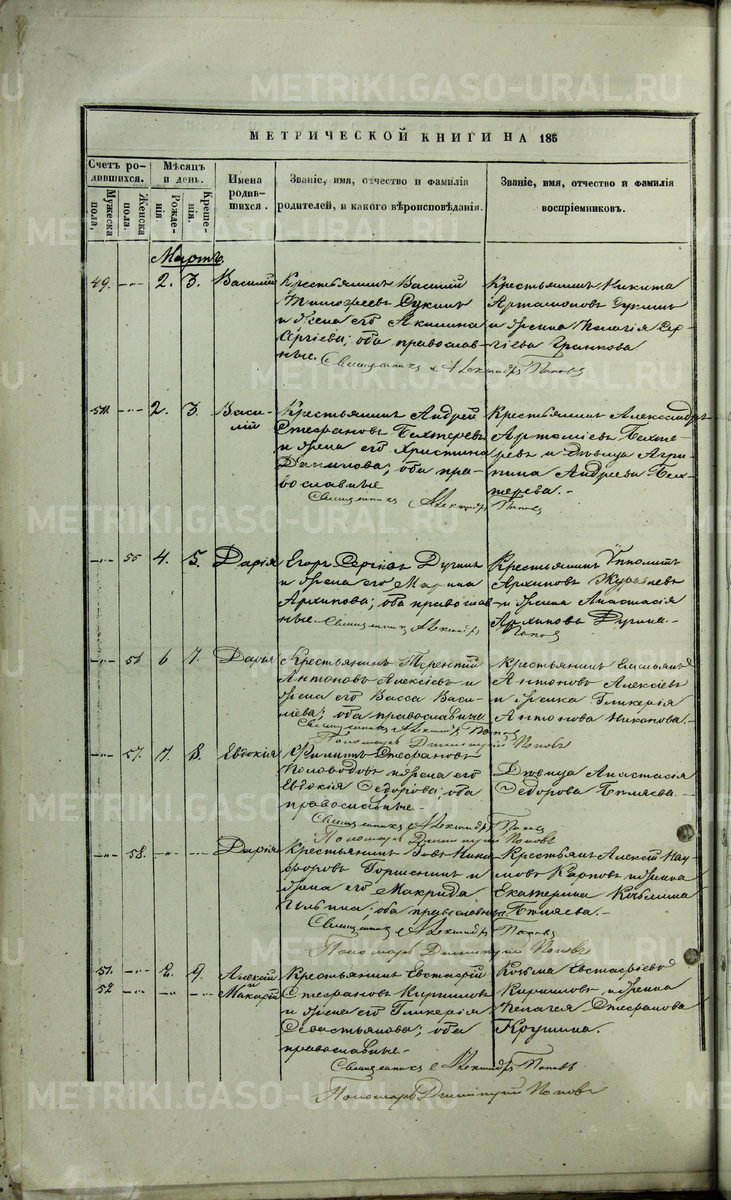 METRIKI.GASO-URAL.RU
МЕТРИЧЕСКОЙ КНИГИ НА 185
Счетъ родившихся.
Мѣсяцъ и день.
Имена родившихся.
Званіе, имя, отчество и фамилія родителей, и какого вѣроисповѣданія.
Званіе, имя, отчество и фамилія воспріемниковъ.
Мужеска пола,
Женска пола.
Рожденія
Крещенія.
Мартъ.
49. 2. 3. Василій
Крестьянинъ Василій
Тимофеевъ
и жена его Акилина
Сергіева; оба православ-
ные.
Крестьянинъ Никита
Артамоновъ
и жена Пелагія Сер-
гіева
Священникъ Александръ Поповъ
50. 2. 3. Васи-
лій
Крестьянинъ Андрей
Стефановъ Бехтеревъ
и жена его Христина
Данилова; оба пра-
вославные
Крестьянинъ Александръ
Артеміевъ Бехте-
ревъ и дѣвица Агри-
пина Андреева Бех-
терева.
Священникъ Александръ Поповъ
55 4. 5. Дарія
Егоръ Сергіевъ
и жена его Марина
Архипова; оба православ-
ные.
Крестьянинъ Ипполитъ
Архиповъ Журавлевъ
и жена Анастасія
Архипова
Священникъ Александръ Поповъ
56 6 7. Дарія
Крестьянинъ Терентій
Антоновъ Алексіевъ и
жена его Васса Васи-
ліева; оба православные
Крестьянинъ Емельянъ
Антоновъ Алексіевъ
и женка Гликерія
Антонова Никонова.
Священникъ Александръ Поповъ
Пономарь Димитрій Поповъ
57. 7. 8. Евдокія
Филиппъ Стефановъ
Половодовъ и жена его
Евдокія Федорова; оба
православные.
Дѣвица Анастасія
Федорова Беляева.
Священникъ Александръ Поповъ
Пономарь Димитрій Поповъ
58. Дарія
Крестьянинъ Ники-
форовъ Горшенинъ и
жена его Макрида
Ильина; оба православные
Крестьян. Алексій Нау-
мовъ Карповъ и жена
Екатерина Козьмина
Беляева.
Священникъ Александръ Поповъ
Пономарь Димитрій Поповъ
51. 8. 9. Алексій
52 и Макарій
Крестьянинъ Евстафій
Стефановъ Кириловъ
и жена его Гликерія
Севастьянова; оба
православные.
Козьма Евстафіевъ
Кириловъ и жена
Пелагея Стефанова
Крушина.
Священникъ Александръ Поповъ
Пономарь Димитрій Поповъ